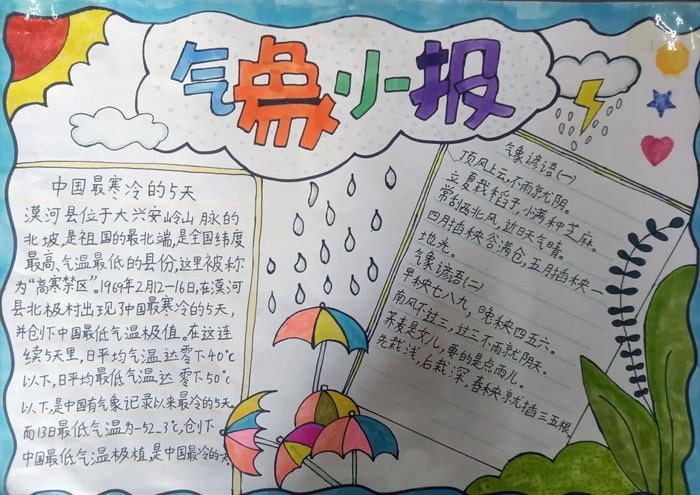 气象小报
中国最寒冷的5天
漠河县位于大兴安岭山脉的
北坡,是祖国的最北端,是全国纬度
最高、气温最低的县份,这里被称
为“高寒禁区”。1969年2月12-16日,在漠河
县北极村出现了中国最寒冷的5天,
并创下中国最低气温极值。在这连
续5天里,日平均气温达零下40℃
以下,日平均最低气温达零下50℃
以下,是中国有气象记录以来最冷的5天。
而13日最低气温为-52.3℃,创下
中国最低气温极植,是中国最冷的天
气象谚语(一)
顶风上云,不雨就阴。
立夏栽稻子,小满种芝麻。
常刮西北风,近日天气晴。
四月插秧谷满仓,五月插秧一
地光。
气象谚语(二)
早秧七八九,晚秧四五六。
南风不过三,过三不雨就阴天。
荞麦是女儿,要的是点雨儿。
先栽浅,后栽深,春秧就插三五根。